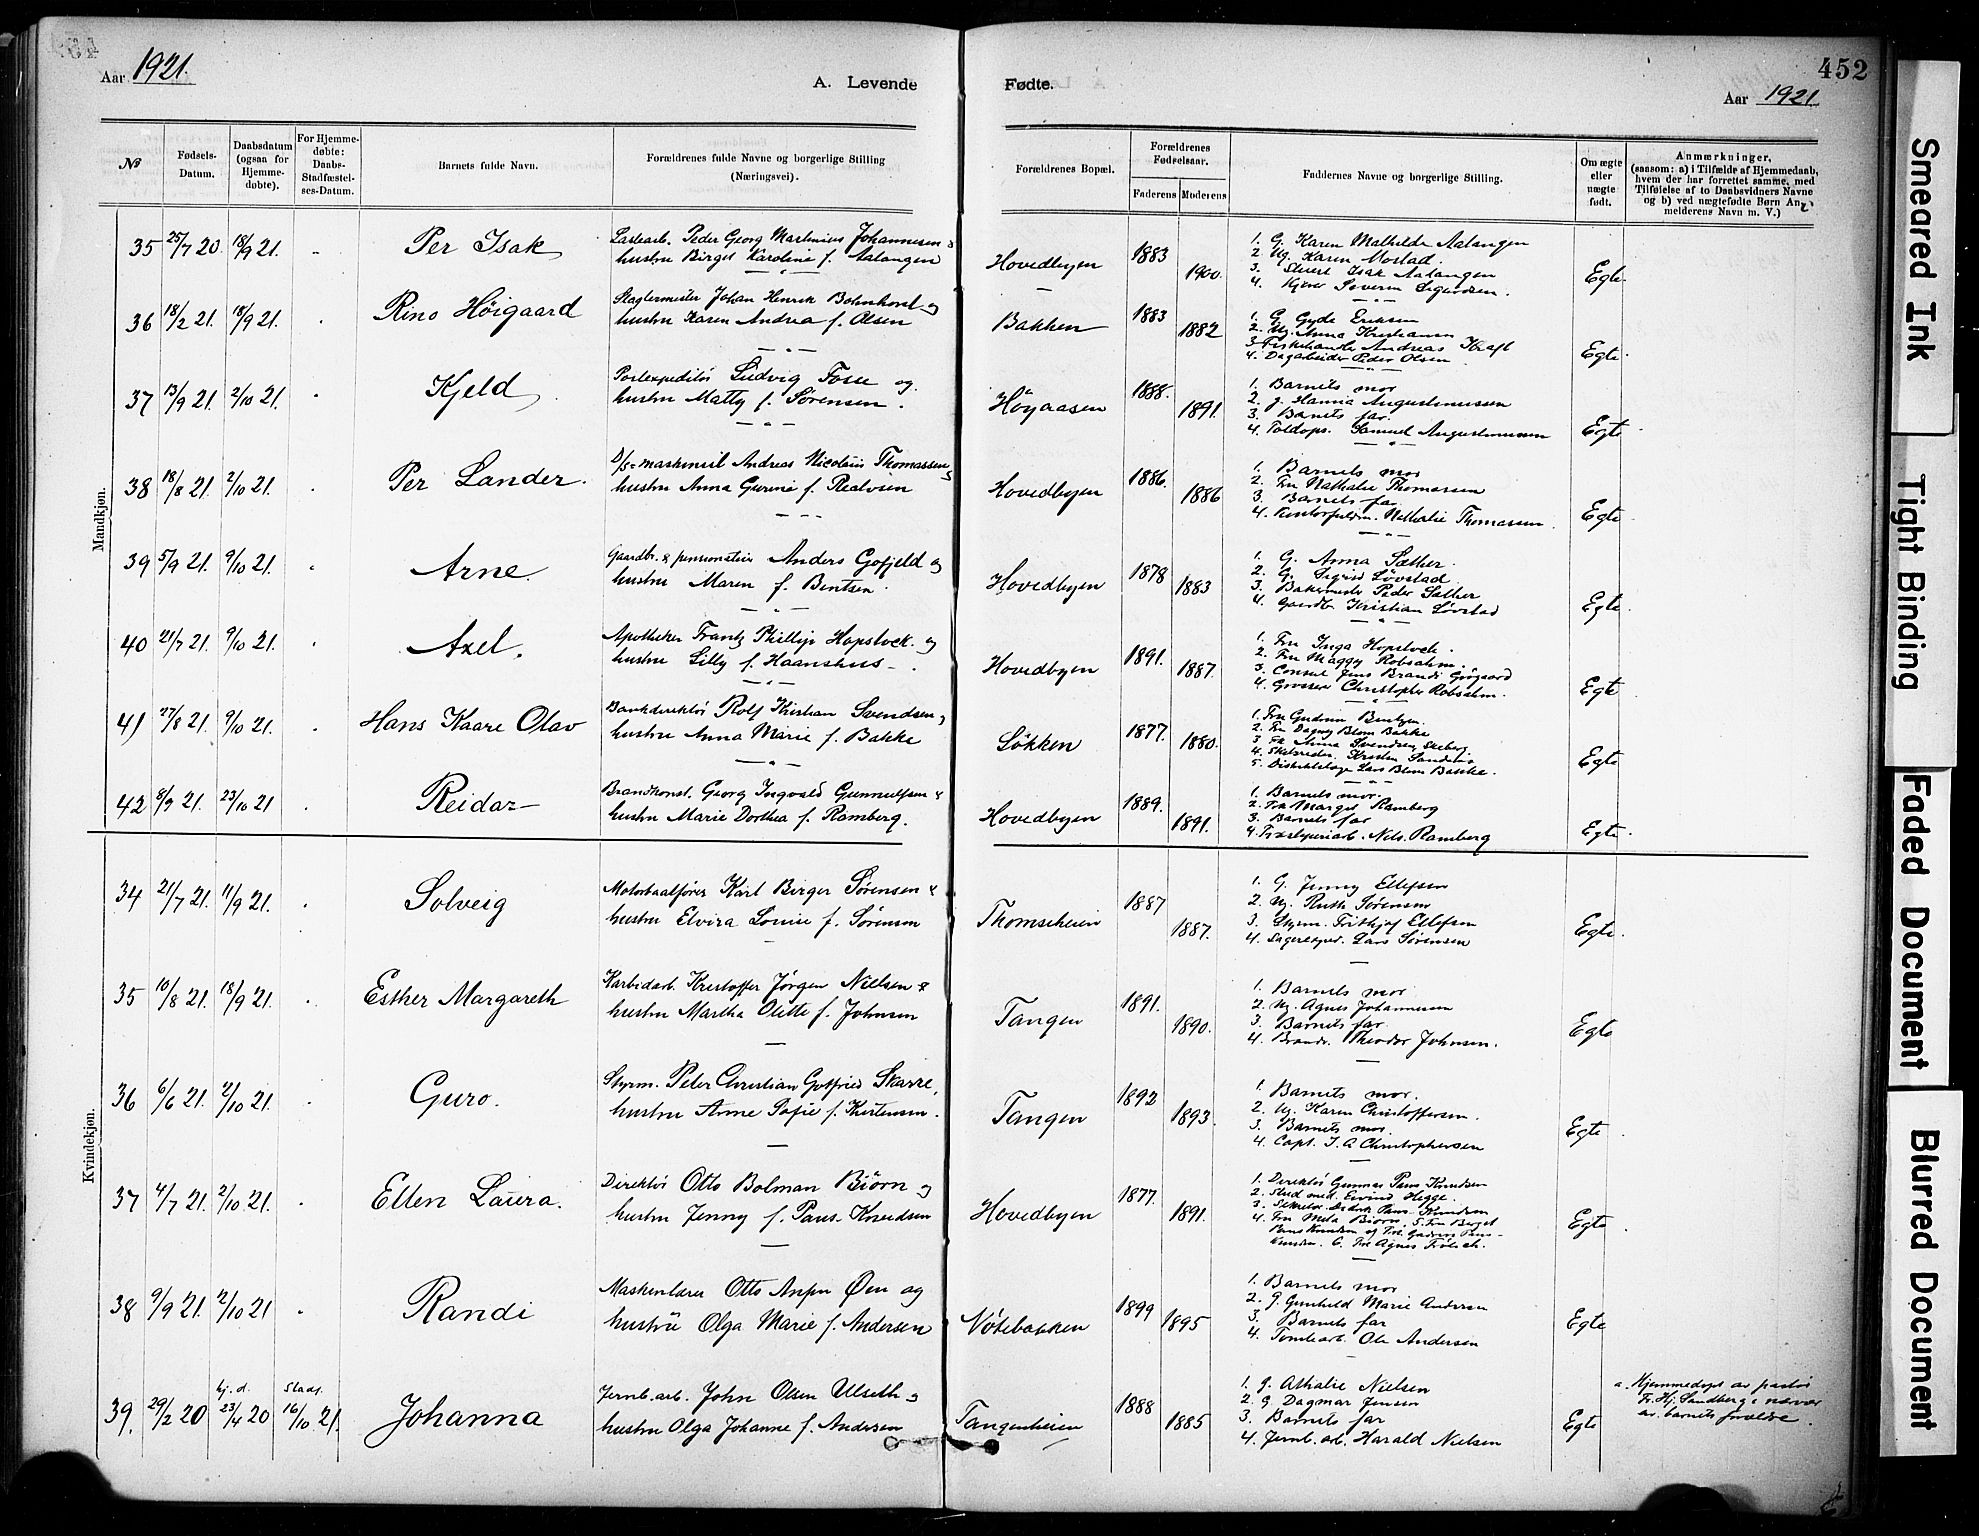 Aar 1921.
A. Levende
Fødte.
452
Aar 1921
№
Fødsels-Datum.
Daabsdatum (ogsaa for Hjemmedøbte).
For Hjemmedøbte: Daabs-Stadfæstelses-Datum.
Barnets fulde Navn.
Forældrenes fulde Navne og borgerlige Stilling (Næringsvei).
Forældrenes Bopæl.
Forældrenes Fødselsaar.
Faderens
Moderens
Faddernes Navne og borgerlige Stilling.
Om ægte eller uægte født.
Anmærkninger,
(saasom: a) i Tilfælde af Hjemmedaab,
hvem der har forrettet samme, med
Tilføielse af to Daabsvidners Navne
og b) ved uægtefødte Børn An-
melderens Navn m. V.)
Mandkjøn.
35 25/7 20 18/9 21. Per Isak
Lastearb. Peder Georg Martinius Johannesen &
hustru Birget Karoline f. Aalangen
Hovedbyen 1883 1900.
1. G. Karen Mathilde Aalangen
2. Ug. Karen Mostad.
3. Isak Aalangen
4. Severin Sigurdsen.
Egte.
36 18/2 21. 18/9 21. Rino Höigaard
Slagtermester Johan Henrik Bohnhorst og
hustru Karen Andrea f. Olsen
Bakken 1883 1882
1. G. Gyda Eriksen
2. Ug. Anna Kristiansen
3. Fiskehandler Andreas Kraft
4. Dagarbeider Peder Olsen
Egte.
37 13/9 21. 2/10 21. Kjeld
Postexpeditör Ludvig Fosse og
hustru Matty f. Sörensen.
Höyaasen 1888. 1891.
1. Barnets mor
2. g. Hanna Augustinussen
3. Barnets far.
4. Toldops. Samuel Augustinussen
Egte
38 18/8 21. 2/10 21. Per Lander.
D/s-maskinist Andreas Nicolais Thomassen &
hustru Anna Gurine f. Realvsen
Hovedbyen 1886. 1886
1. Barnets mor
2. Fru Nathalie Thomassen
3. Barnets far
4. Nathalie Thomassen.
Egte
39 5/9 21. 9/10 21. Arne.
Gaardbr. & pensionatier Anders Gofjeld og
hustru Maren f. Bentsen.
Hovedbyen 1878 1883
1. G. Anna Sæther.
2. G. Sigrid Lövstad.
3. Bakermester Peder Sæther
4. Gaardbr. Kristian Lövstad
Egte.
40 21/7 21. 9/10 21. Axel.
Apotheker Frantz Phillip Hopstock og
hustru Lilly f. Haanshus.
Hovedbyen 1891. 1887.
1. Fru Inga Hopstock.
2. Fru Maggy Robsahm.
3. Consul Jens Brandi Grögaard
4. Grosserer Christopher Robsahm.
Egte
41 27/8 21. 9/10 21. Hans Kaare Olav
Bankdirektör Rolf Kristian Svendsen og
hustru Anna Marie f. Bakke
Lökken 1877. 1880.
1. Fru Gudrun Bentzen.
2. Fru Dagny Blom Bakke
3. Fr. Anna Svendsen Skeberg.
4. Skibsreder
5. Distriktslæge Lars Blom Bakke.
Egte.
42 8/7 21. 23/10 21 Reidar
Brandkonst. Georg Ingvald Gunnulfsen &
hustru Marie Dorthea f. Ramberg.
Hovedbyen 1889. 1891.
1. Barnets mor.
2. Fru Margit Ramberg
3. Barnets far
4. Nels. Ramberg
Egte.
Kvindekjøn.
34 21/7 21. 11/9 21. Solveig
Motorbaatförer Karl Birger Sörensen &
hustru Elvira Louise f. Sörensen
Thomseheien 1887 1887.
1. G. Jenny Ellefsen
2. Ug. Ruth Sörensen
3. Styrm. Fridthjof Ellefsen
4. Lagerexped. Lars Sörensen
Egte.
35 10/8 21. 18/9 21. Esther Margareth
Karbidarb. Kristoffer Jörgen Nielsen &
hustru Martha Olette f. Johnsen
Tangen 1891. 1890.
1. Barnets mor
2. Ug. Agnes Johannesen
3. Barnets far.
4. Brandk. Theodor Johnsen.
Egte
36 6/6 21. 2/10 21. Guro.
Styrm. Peter Christian Gotfried Skarre,
hustru Anne Sofie f. Kristensen.
Tangen 1892 1893.
1. Barnets mor.
2. Ug. Karen Christoffersen.
3. Barnets mor.
4. Capt. J. A Christophersen
Egte
37 4/7 21. 2/10 21. Ellen Laura.
Direktör Otto Bolman Biörn og
hustru Jenny f. Paus-Knudsen
Hovedbyen 1877. 1891.
1. Direktör Gunnar Paus Knudsen
2. Stud. med. Eivind Hegge.
3. Sekretær Paus Knudsen
4. Fru Meta Biörn. 5. Fru Berget
Paus Knudsen og Frk. Paus-
Knudsen. 6. Frk Agnes Frölich.
Egte
38 9/9 21. 2/10 21 Randi
Maskinlærer Otto Øen og
hustru Olga Marie f. Andersen
Nötebakken 1899 1895
1. Barnets mor
2. g. Gunhild Marie Andersen
3. Barnets far
4. Tomtearb. Ole Andersen
Egte
39. 29/2 20 hj. d. 23/4 20 Stadf. 16/10 21. Johanna
Jernb.arb. John Olsen Ulseth og
hustru Olga Johanne f. Andersen
Tangenheien 1888 1885
1. g. Athalie Nielsen
2. G. Dagmar Jensen
3. Barnets far
4. Jernb. arb. Harald Nielsen
Egte
a. Hjemmedöpt av pastor
Fr. Hj. Sandberg i nærvær
av barnets forældre.
Smeared Ink
Tight Binding
Faded Document
Blurred Document